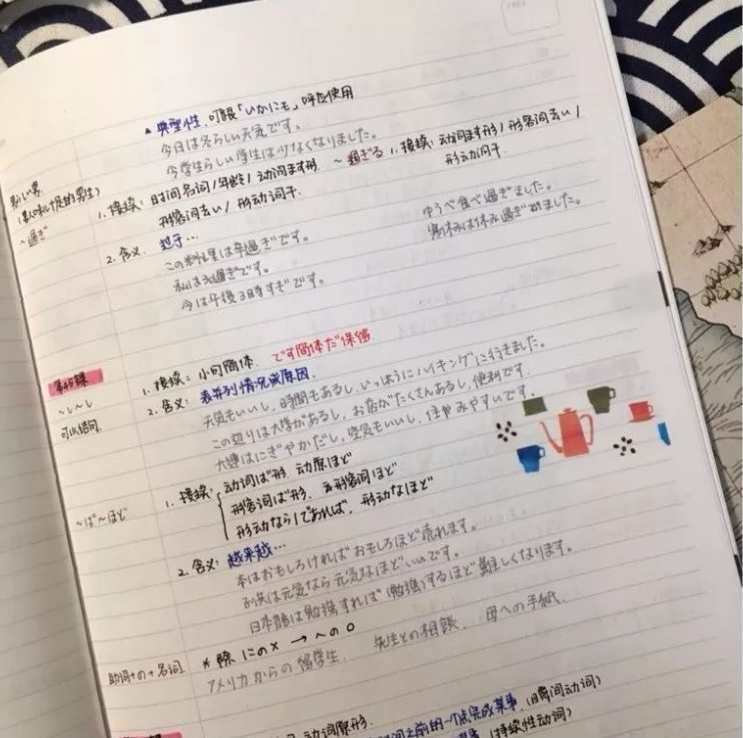 ▲ 典型性.可跟「いかにも」呼应使用
今日は冬らしい天気です。
今学生らしい学生は少なくなりました。
~過ぎ
1. 接续: 时间名词/年龄/动词ます形
形容词去い/形动词干
2. 含义
この料理は辛過ぎです。
私は太過ぎです。
今は午後3時すぎです。
~過ぎる 1. 接续: 动词ます形/形容词去い/
形动词干
ゆうべ食べ過ぎました。
第45课
~し~し
可以结句.
1. 接续: 小句简体. です简体だ保留
2. 含义: 表并列情况或原因.
天気もいいし、時間もあるし、いっしょうにハイキングに行きました。
この辺りは大学があるし、お店がたくさんあるし、便利です。
大連はにぎやかだし、空気もいいし、住みやすいです。
~ば~ほど
1. 接续: 动词ば形.动原ほど
形容词ば形.形容词ほど
形动なら/であれば,形动なほど
2. 含义: 越来越…
本はおもしろければおもしろほど売れます。
お父は元気なら元気なほどいいです。
日本語は勉強すれば(勉強)するほど難しくなります。
助词+の+名词
* 除 にの× → への○
アメリカからの留学生. 先生との相談. 母への手紙.
动词原形.
之前的一个点完成某事.(瞬间动词)
(持续性动词)